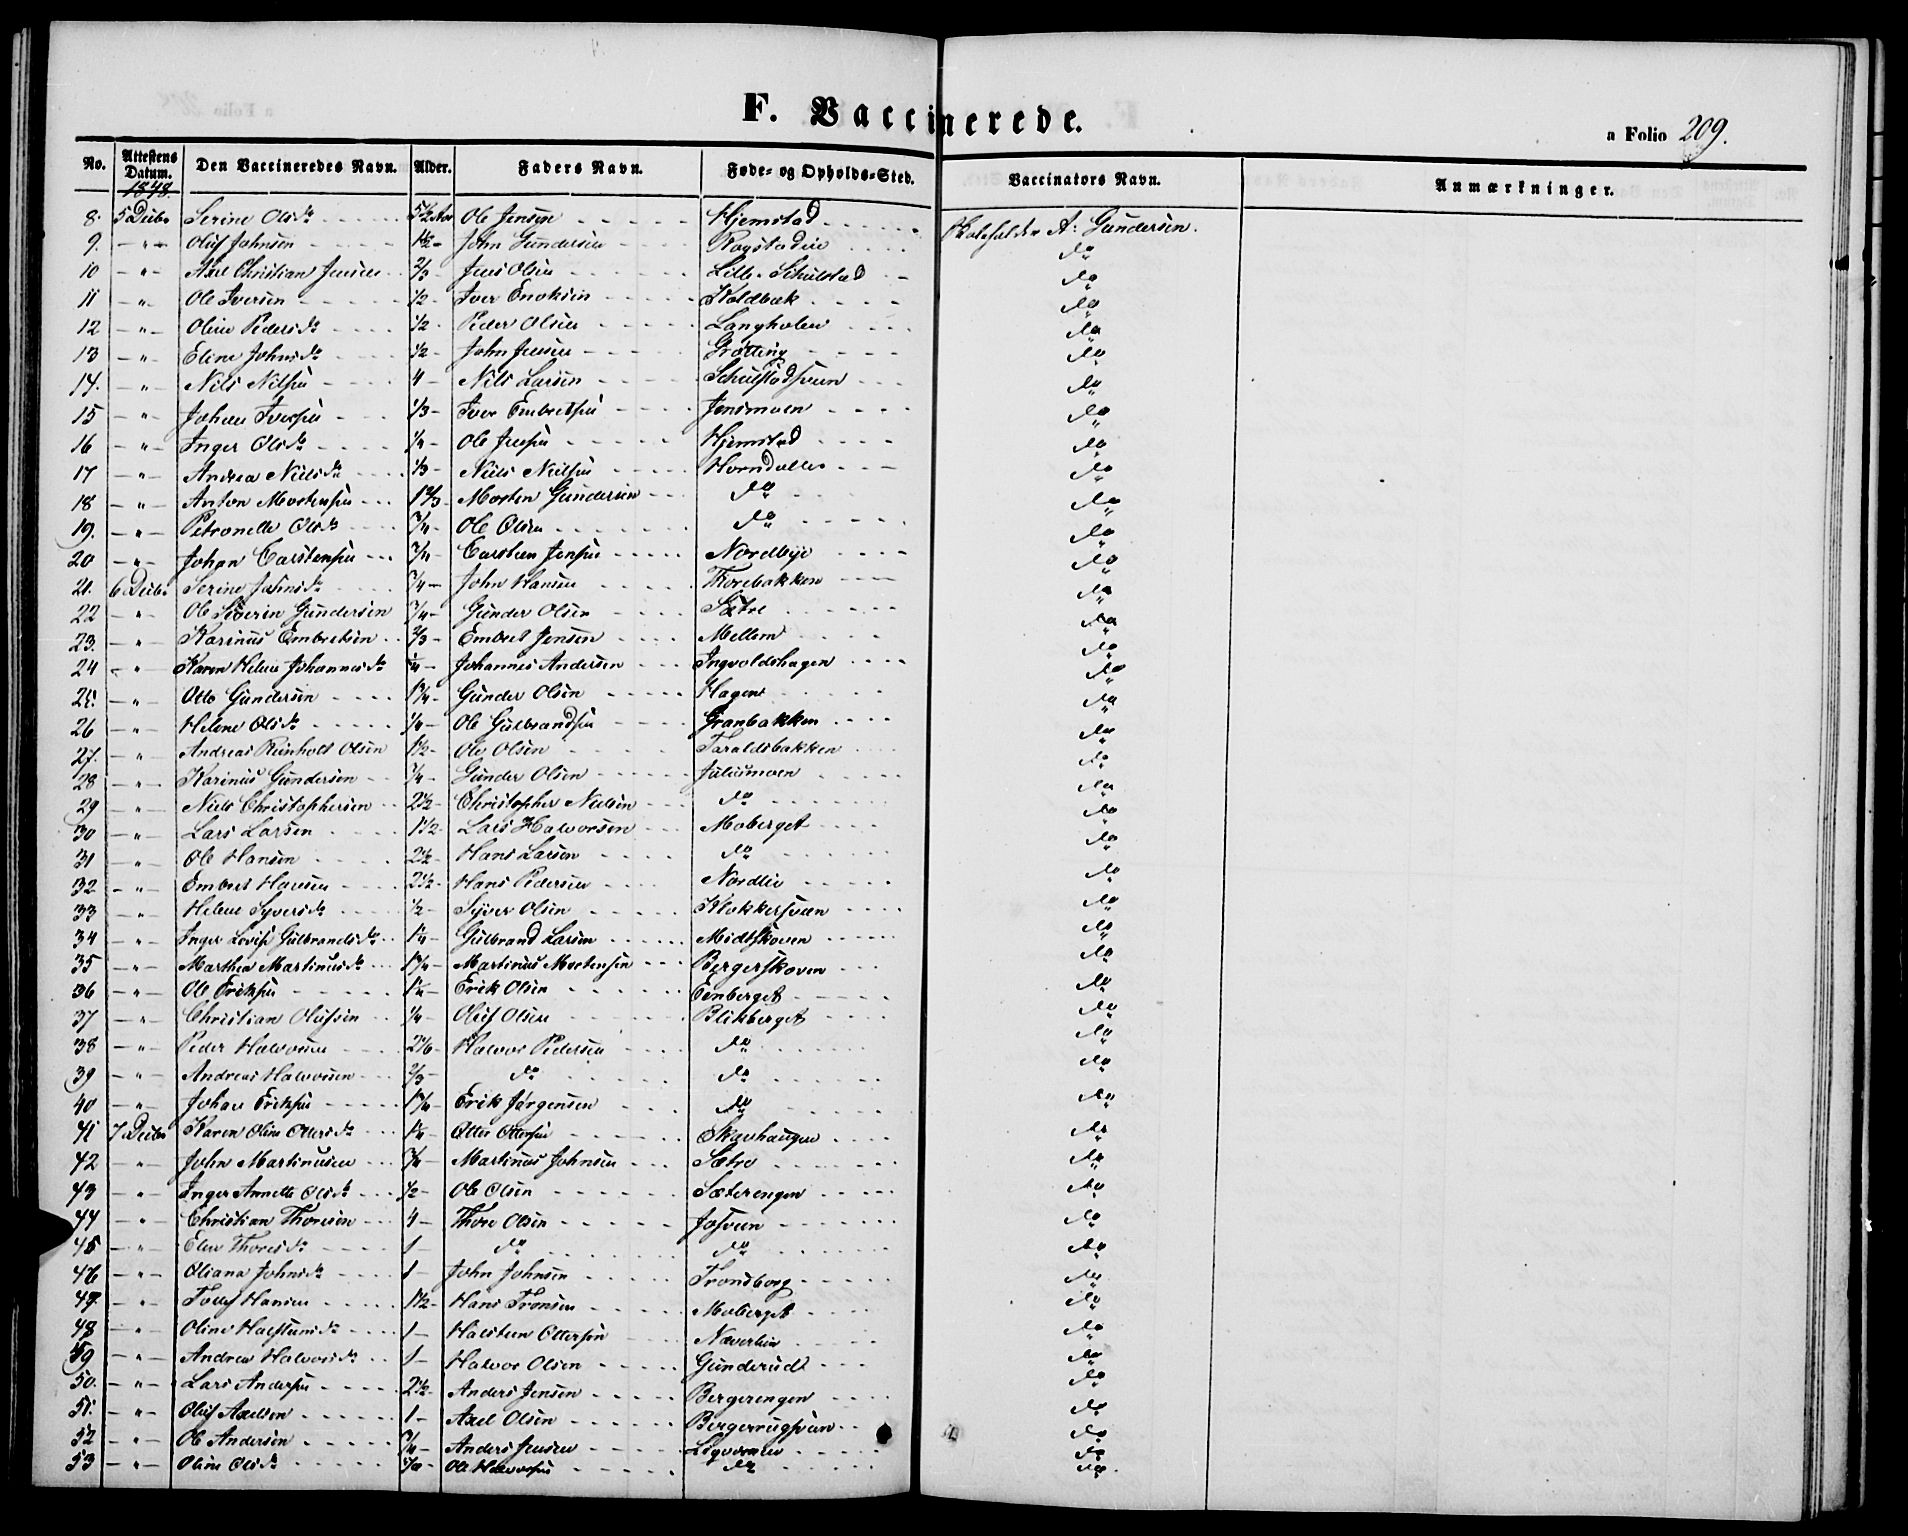 F. Vaccinerede.
a Folio 209.
No. Attestens Datum. Den Vaccineredes Navn. Alder. Faders Navn. Føde- og Opholds-Sted. Vaccinators Navn. Anmærkninger.
1848.
8. 5 Decbr Serine Olsdr 5½ Aar Ole Jensen Hjemstad A: Gundersen.
9. - " - Oluf Johnsen 1½ - John Gundersen Rogstadeie do
10 - " - Axel Christian Jensen ⅔ - Jens Olsen Lille-Schulstad do
11 - " - Ole Iversen ½ - Iver Enoksen Koldbæk do
12 - " - Oline Pedersdr ½ - Peder Olsen Langholen do
13 - " - Eline Johnsdr ½ - John Jensen Grøtting do
14. - " - Nils Nilsen 4 - Nils Larsen Schulstadsveen do
15 - " - Johan Iversen ⅓ - Iver Embretsen Jensmoen do
16 - " - Inger Olsdr ¼ - Ole Jensen Hjemstad do
17 - " - Andrea Nielsdr ⅓ - Niels Nielsen Horndallen do
18 - " - Anton Mortensen 1⅔ - Morten Gundersen do do
19. - " - Petronelle Olsdr ¾ - Ole Olsen do do
20 - " - Johan Carstensen ¾ - Carsten Jensen Nordbye do
21. 6 Decbr Serine Johnsdr ¾ - John Hansen Thorebakken do
22 - " - Ole Siverin Gundersen ¾ - Gunder Olsen Sætre do
23. - " - Karinus Embretsen ⅔ - Embret Jensen Mellem do
24 - " - Karen Helene Johannesdr ¼ - Johannes Andersen Ingvoldshagen do
25. - " - Otto Gundersen 1¼ - Gunder Olsen Hagen do
26 - " - Helene Olsdr ¼ - Ole Gulbrandsen Granbakken do
27. - " - Andreas Reinholt Olsen 1½ - Ole Olsen Taraldsbakken do
28 - " - Karinus Gundersen ¾ - Gunder Olsen Juliusmoen do
29 - " - Niels Christophersen 2½ - Christopher Nielsen do do
30 - " - Lars Larsen 1½ - Lars Halvorsen Moberget do
31 - " - Ole Hansen 2½ - Hans Larsen do do
32 - " - Embret Hansen 2½ - Hans Pedersen Nordlie do
33 - " - Helene Syversdr ½ - Syver Olsen Klokkersveen do
34 - " - Inger Lovise Gulbrandsdr 1¼ - Gulbrand Larsen Midtskoven do
35 - " - Marthea Martinusdr 1¾ - Martinus Mortensen Bergerskoven do
36 - " - Ole Eriksen 1¼ - Erik Olsen Eenberget do
37 - " - Christian Olufsen ¼ - Oluf Olsen Blikberget do
38 - " - Peder Halvorsen Halvor Pedersen do do
39 - " - Andreas Halvorsen ⅔ - do do do
40 - " - Johan Eriksen 1¾ - Erik Jørgensen do do
41 7 Decbr Karen Oline Ottersdr 1¼ - Otter Ottersen Skavhaugen do
42 - " - John Martinusen ¾ - Martinus Johnsen Sætre do
43 - " - Inger Annette Olsdr ½ - Ole Olsen Sæterengen do
44 - " - Christian Thoresen 4 - Thore Olsen Josveen do
45 - " - Elen Thoresdr 1 - do do do
46 - " - Oliana Johnsdr 1 - John Johnsen Trondborg do
47. - " - Tollef Hansen 1½ - Hans Tronsen Moberget do
48 - " - Oline Halstensdr 1 - Halsten Ottersen Næverlien do
49 - " - Andrea Halvorsdr 1 - Halvor Olsen Gunderud do
50. - " - Lars Andersen 2½ - Anders Jensen Bergerengen do
51. - " - Oluf Axelsen 1 - Axel Olsen Bergerrugsveen do
52 - " - Ole Andersen ¾ - Anders Jensen do
53 - " - Oline Olsdr Ole Halvorsen do do